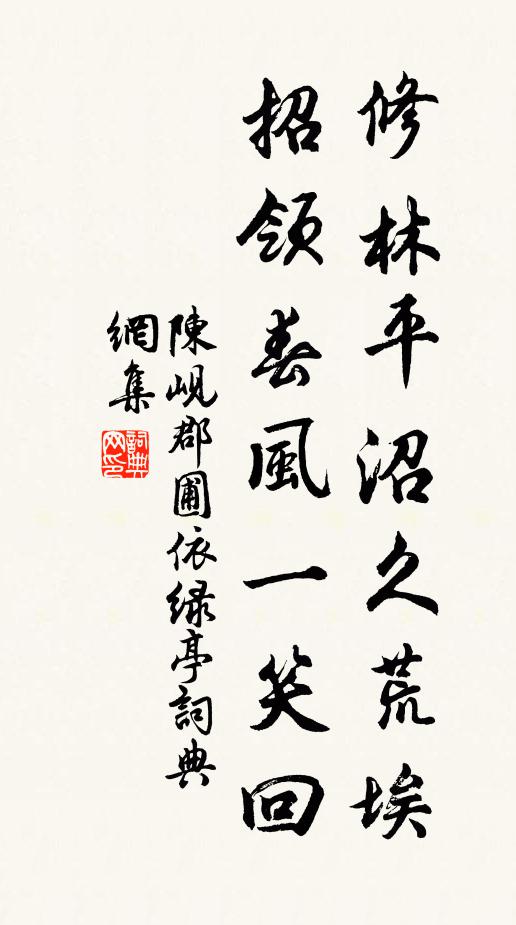 修林平沼久荒埃
招領春風一笑回
陳峴郡圃依緑亭詞典
網集
詞典
网印